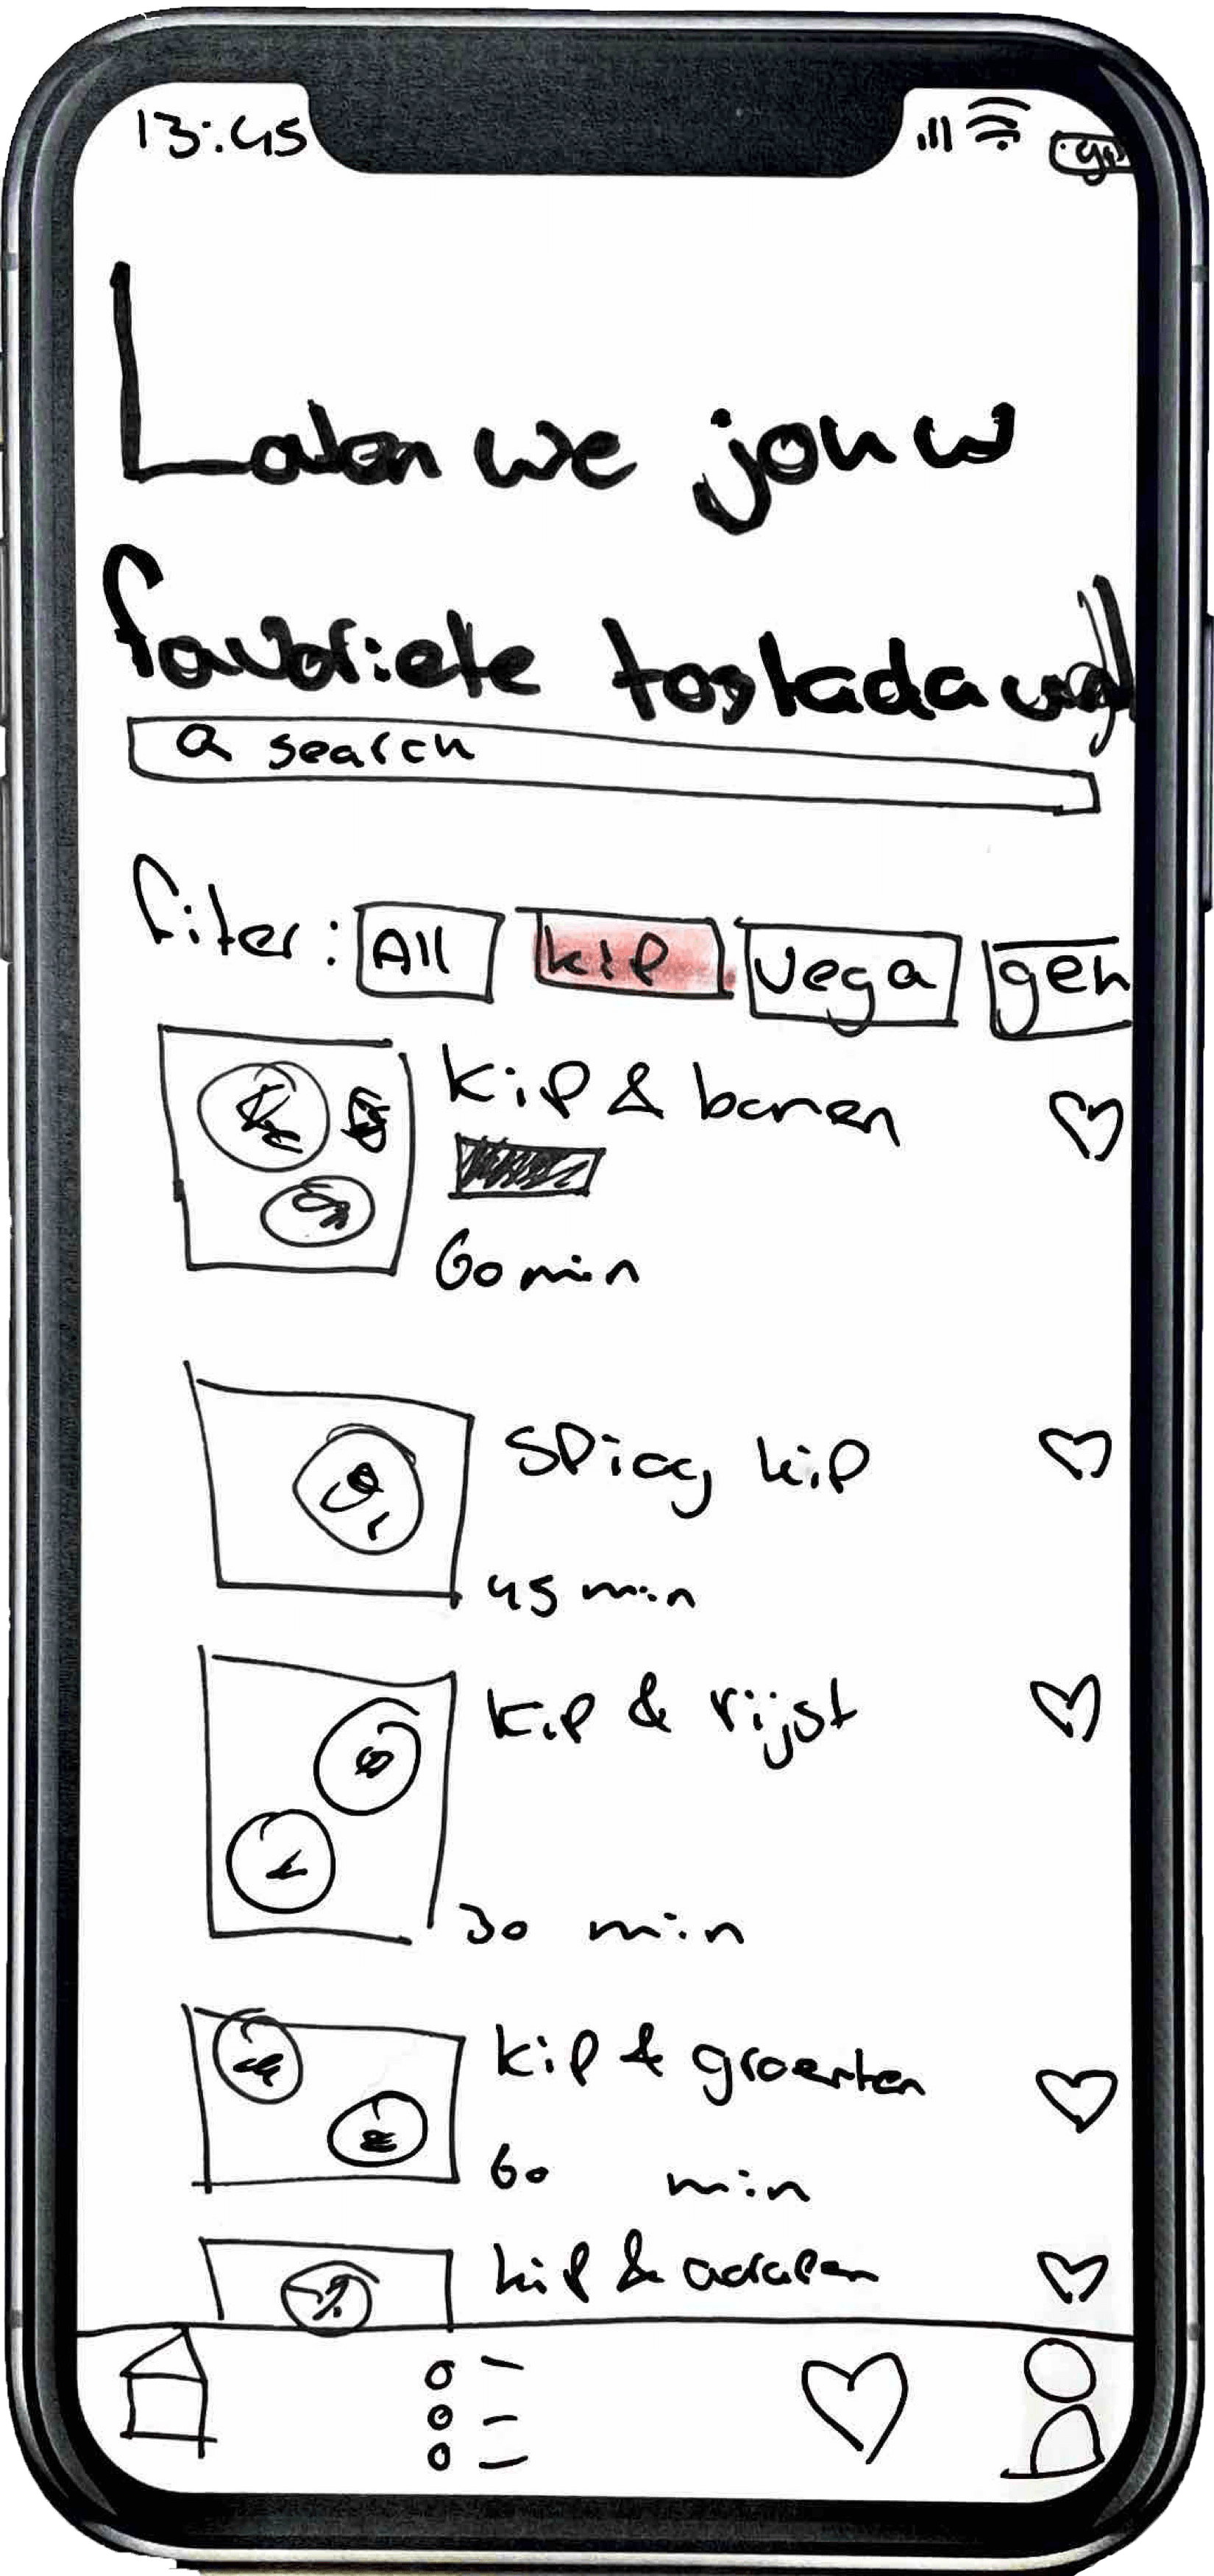 13:45
Laten we jouw
favoriete tostada
search
filter: All kip vega geh
kip & bonen
60 min
Spicy kip
45 min
kip & rijst
30 min
kip & groenten
60 min
kip &